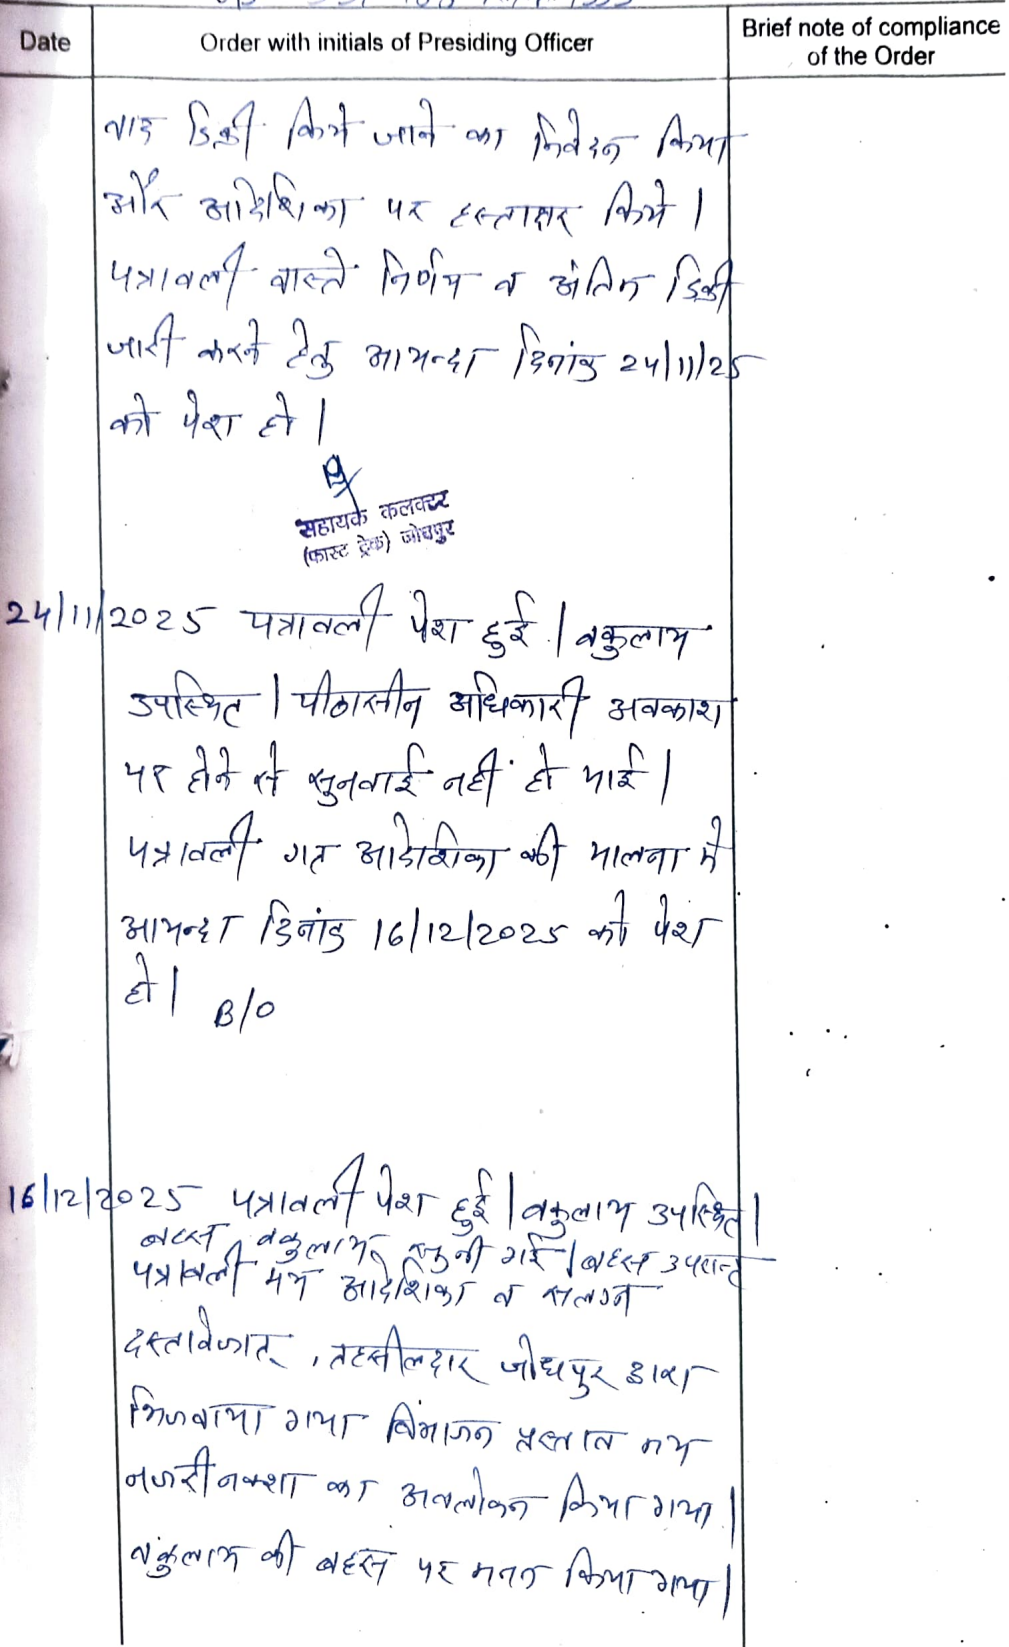 Date
Order with initials of Presiding Officer
Brief note of compliance
of the Order
वाद डिक्री किये जाने का निवेदन किया
और आदेशिका पर हस्ताक्षर किये |
पत्रावली वास्ते निर्णय व अंतिम डिक्री
जारी करने हेतु आयन्दा दिनांक 24/11/25
को पेश हो |
सहायक कलक्टर
(फास्ट ट्रेक) जोधपुर
24/11/2025 पत्रावली पेश हुई | वकुलाय
उपस्थित | पीठासीन अधिकारी अवकाश
पर होने से सुनवाई नहीं हो पाई |
पत्रावली गत आदेशिका की पालना में
आयन्दा दिनांक 16/12/2025 को पेश
हो |
B/O
16/12/2025 पत्रावली पेश हुई | वकुलाय उपस्थित |
बहस वकुलाय सुनी गई | बहस उपरान्त
पत्रावली मय आदेशिका व सलग्न
दस्तावेजात्, तहसीलदार जोधपुर द्वारा
भिजवाया गया विभाजन प्रस्ताव मय
नजरी नक्शा का अवलोकन किया गया |
वकुलाय की बहस पर मनन किया गया |